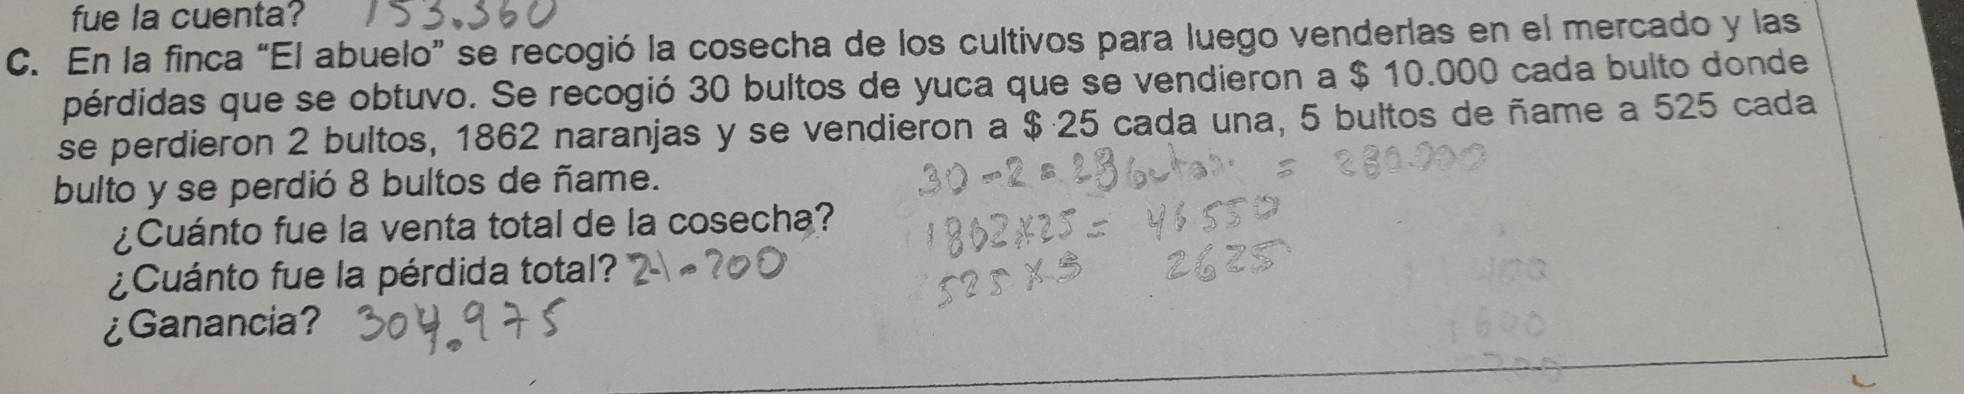 fue la cuenta? 153.360
C. En la finca “El abuelo” se recogió la cosecha de los cultivos para luego venderlas en el mercado y las
pérdidas que se obtuvo. Se recogió 30 bultos de yuca que se vendieron a $ 10.000 cada bulto donde
se perdieron 2 bultos, 1862 naranjas y se vendieron a $ 25 cada una, 5 bultos de ñame a 525 cada
bulto y se perdió 8 bultos de ñame. 30-2=28 bultos. = 280.000
¿Cuánto fue la venta total de la cosecha? 1862x25= 46550
¿Cuánto fue la pérdida total? 24.200 525x5 2625
¿Ganancia? 304.975